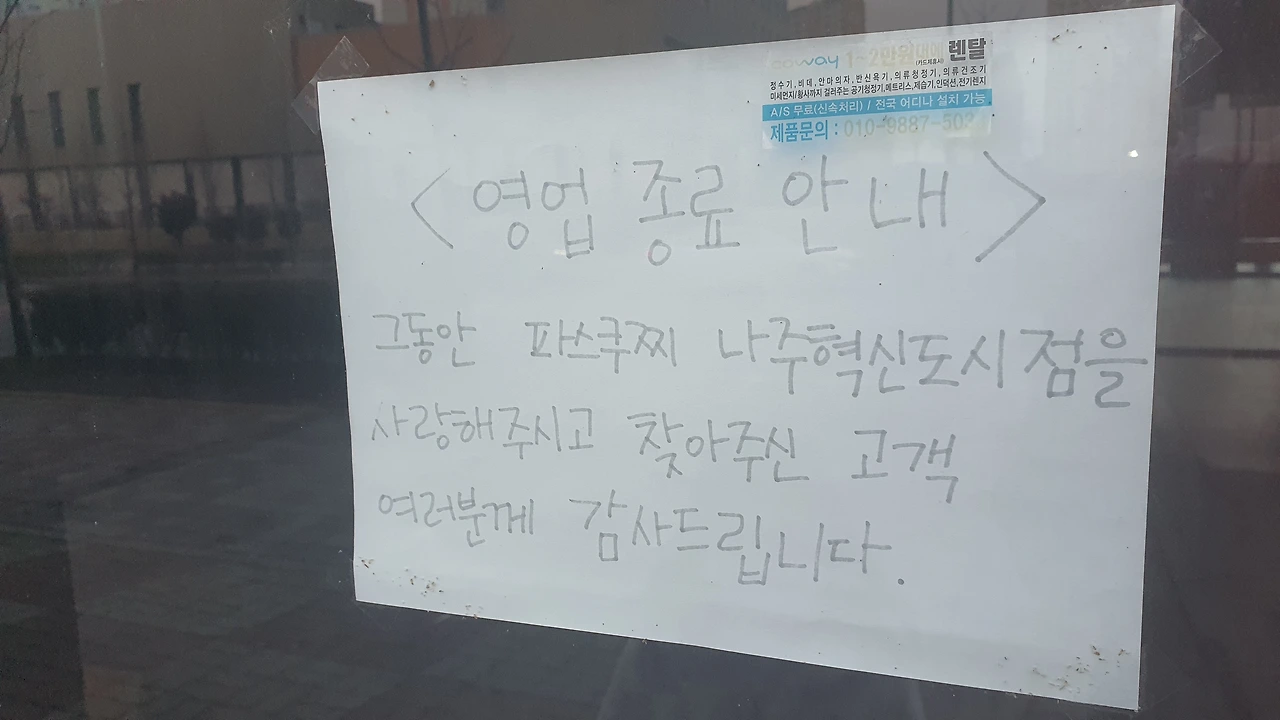 coway 1~2만원대에 렌탈
(카드제휴시)
정수기, 비데, 안마의자, 반신욕기, 의류청정기, 의류건조기
미세먼지/황사까지 걸러주는 공기청정기,메트리스,제습기,인덕션,전기렌지
A/S 무료(신속처리) / 전국 어디나 설치 가능
제품문의 : 010-9887-502
<영업 종료 안내>
그동안 파스쿠찌 나주혁신도시점을
사랑해주시고 찾아주신 고객
여러분께 감사드립니다.